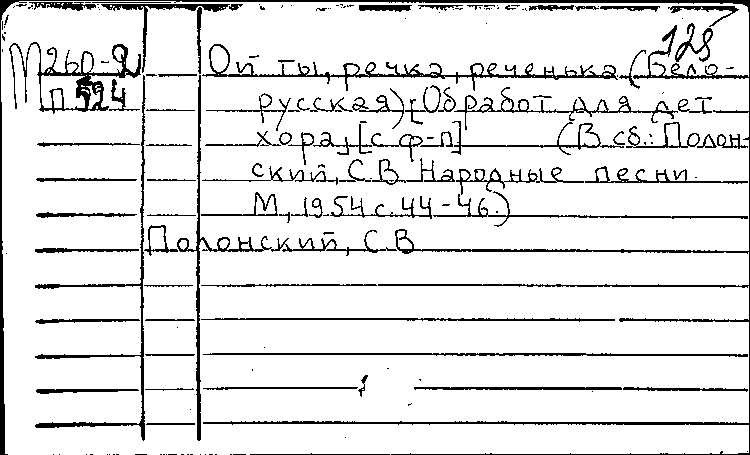 125
М260-2 Ой ты, речка, реченька (Бело-
П 524 русская) [Обработ для дет
хора], [с ф-п] (В сб.: Полон-
ский, С.В Народные песни.
М, 1954 с. 44-46.)
Полонский, С.В